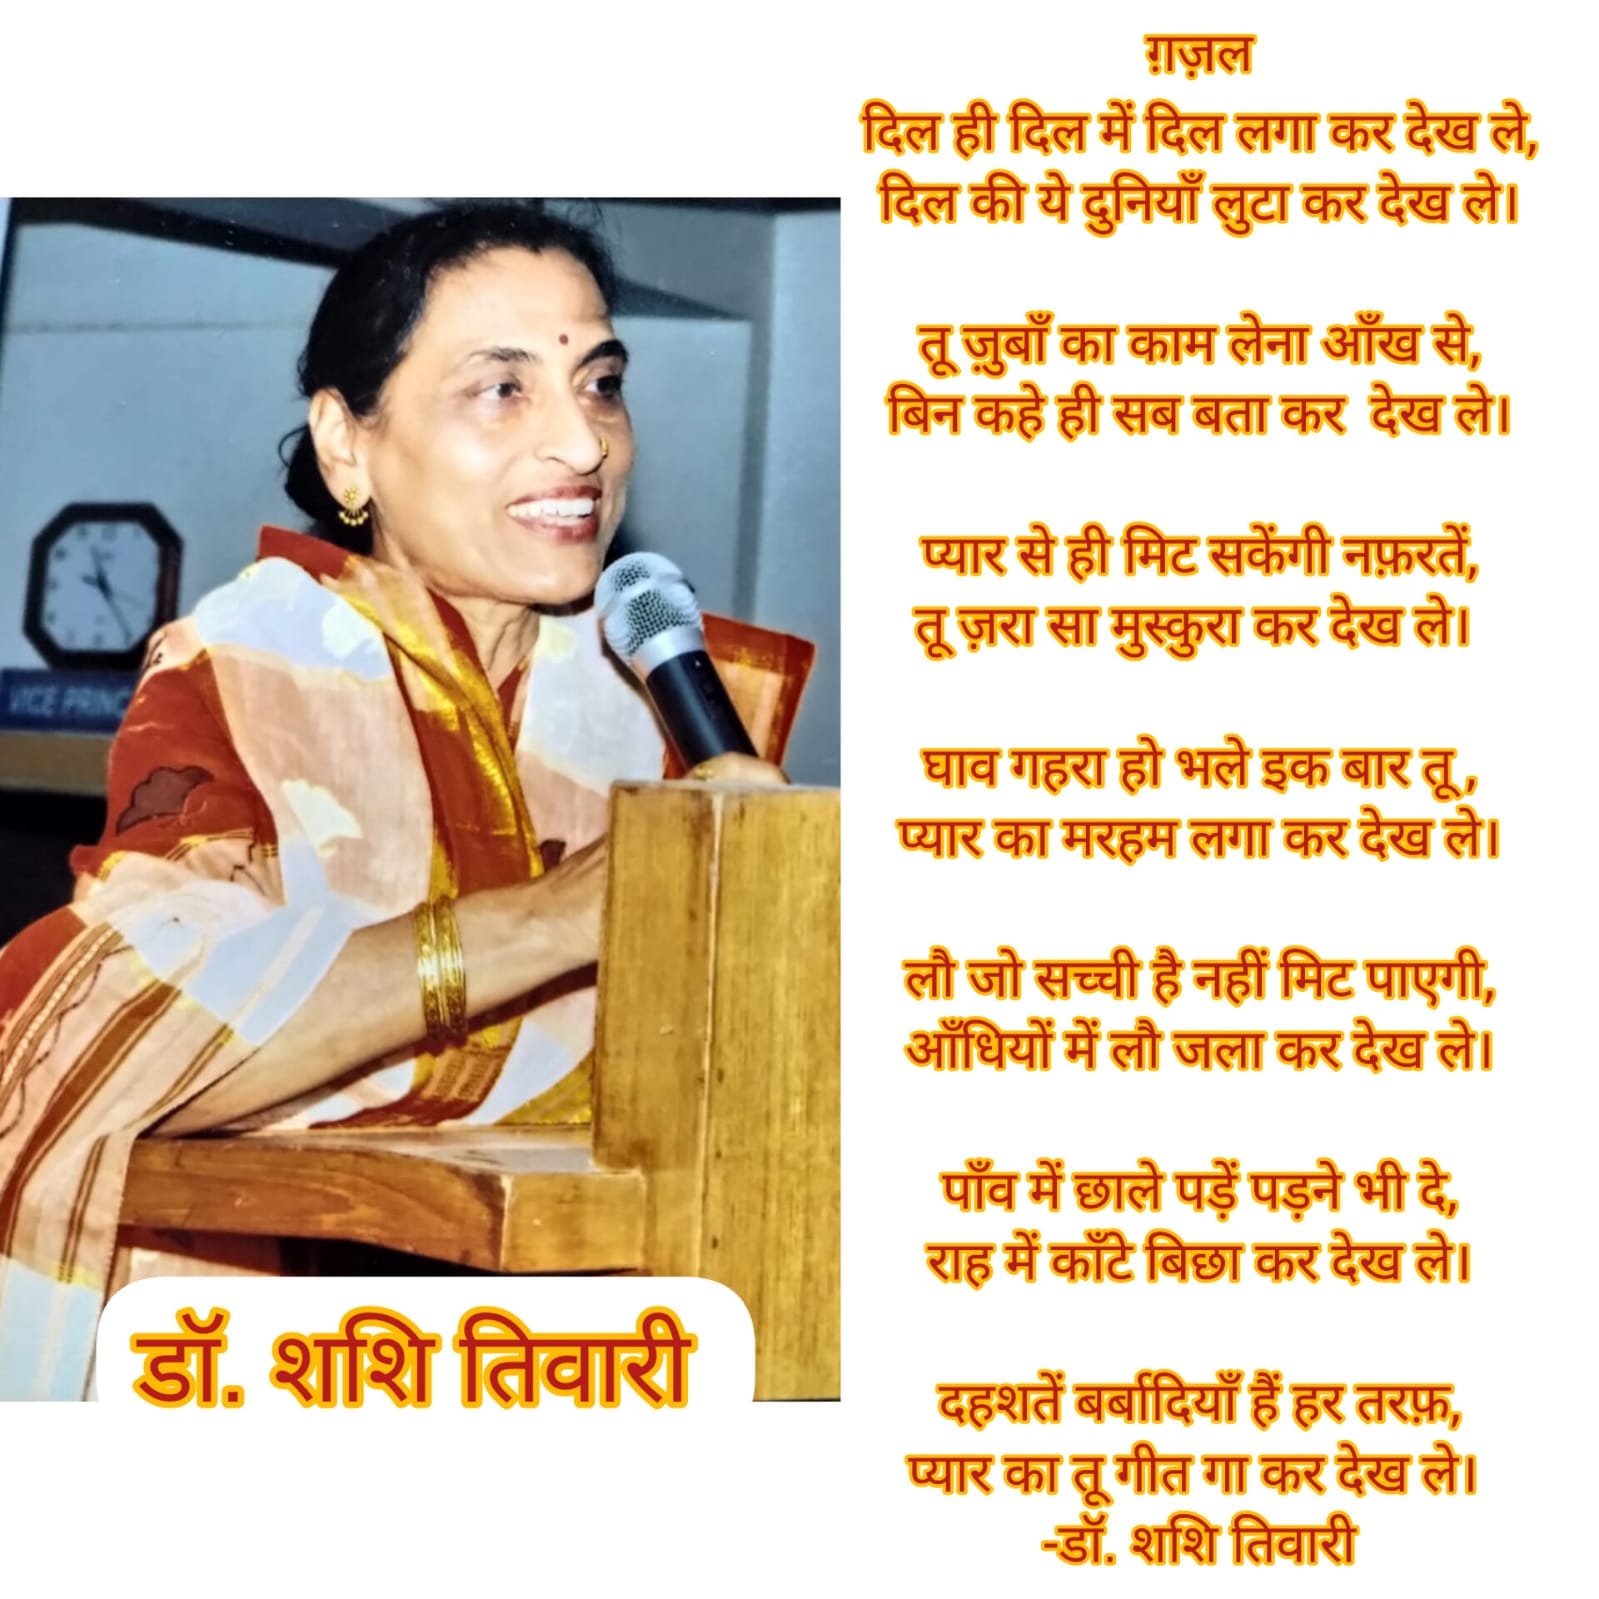 ग़ज़ल
दिल ही दिल में दिल लगा कर देख ले,
दिल की ये दुनियाँ लुटा कर देख ले।
तू ज़ुबाँ का काम लेना आँख से,
बिन कहे ही सब बता कर देख ले।
प्यार से ही मिट सकेंगी नफ़रतें,
तू ज़रा सा मुस्कुरा कर देख ले।
घाव गहरा हो भले इक बार तू ,
प्यार का मरहम लगा कर देख ले।
लौ जो सच्ची है नहीं मिट पाएगी,
आँधियों में लौ जला कर देख ले।
पाँव में छाले पड़ें पड़ने भी दे,
राह में काँटे बिछा कर देख ले।
दहशतें बर्बादियाँ हैं हर तरफ़,
प्यार का तू गीत गा कर देख ले।
-डॉ. शशि तिवारी
VICE
डॉ. शशि तिवारी